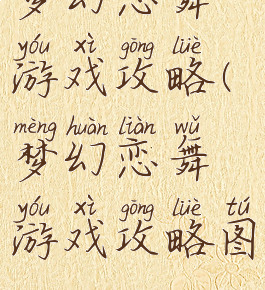 梦幻恋舞
yóu xì gōng lüè
游戏攻略(
mèng huàn liàn wǔ
梦幻恋舞
yóu xì gōng lüè tú
游戏攻略图